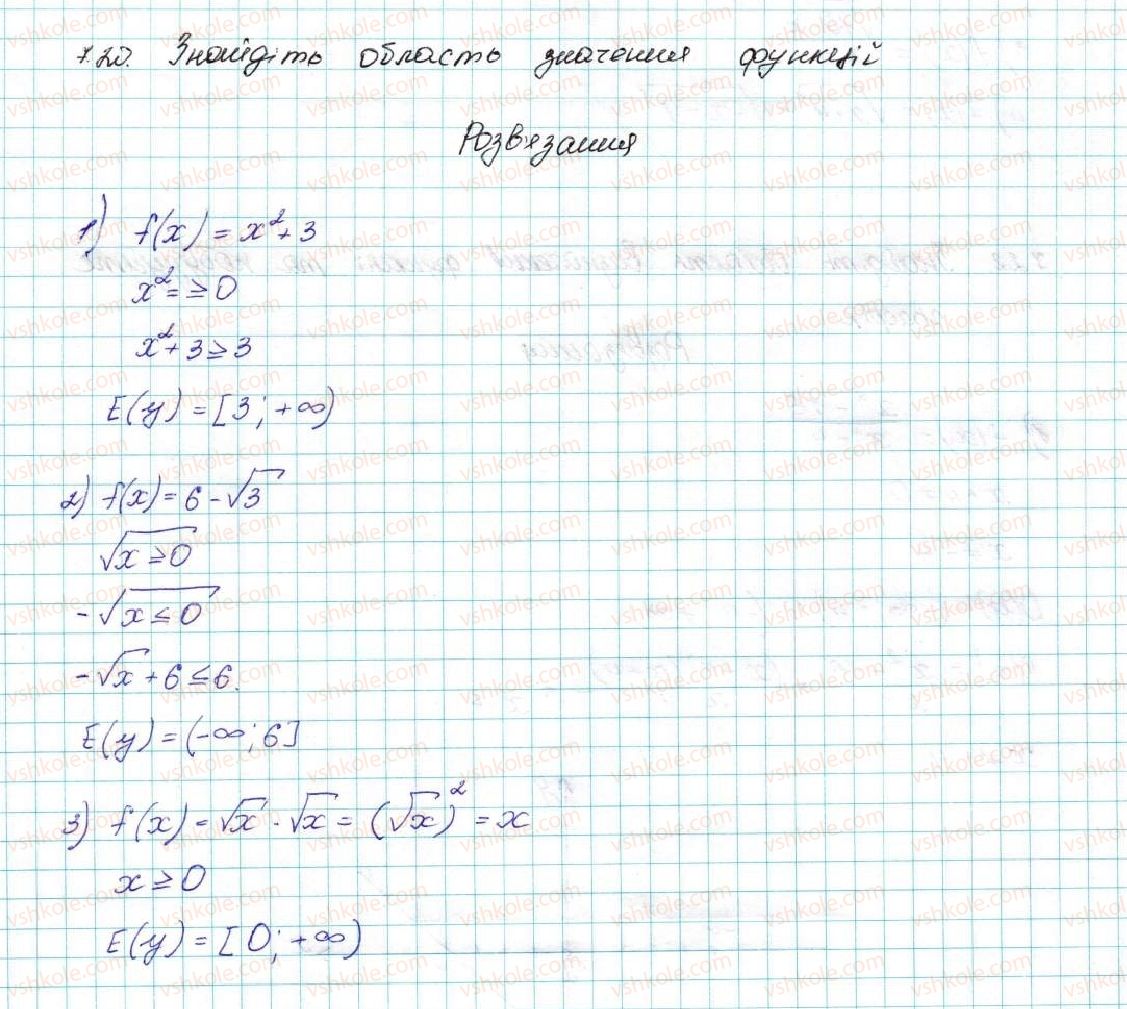 7.20. Знайдіть область значення функцій
Розв'язання
1) f(x) = x² + 3
x² = ≥ 0
x² + 3 ≥ 3
E(y) = [3; +∞)
2) f(x) = 6 - √3
√x ≥ 0
-√x ≤ 0
-√x + 6 ≤ 6.
E(y) = (-∞; 6]
3) f(x) = √x · √x = (√x)² = x
x ≥ 0
E(y) = [0; +∞)